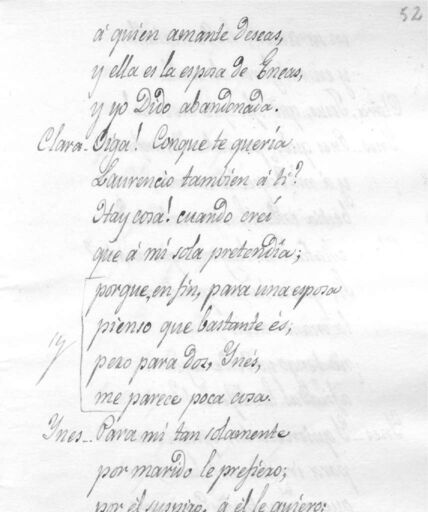 52
á quien amante deseas,
y ella es la esposa de Eneas,
y yo Dido abandonada.
Clara_ Oiga! Conque te quería
Laurencio tambien á ti?
Hay cosa! cuando creí
que á mi sola pretendía;
porque, en fin, para una esposa
pienso que bastante és;
pero para dos, Ynés,
me parece poca cosa.
Ynes_ Para mi tan solamente
por marido le prefiero;
por él suspiro, á él le quiero;